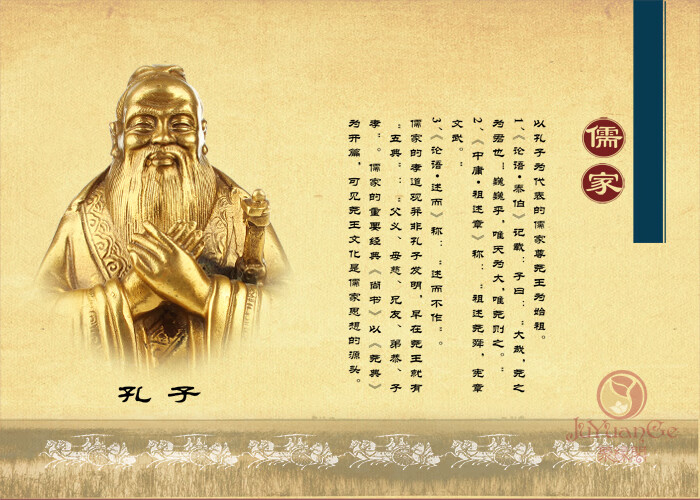 儒家
以孔子为代表的儒家尊尧王为始祖。
1、《论语·泰伯》记载：子曰：“大哉，尧之
为君也！巍巍乎，唯天为大，唯尧则之。”
2、《中庸·祖述章》称：“祖述尧舜，宪章
文武。”
3、《论语·述而》称：“述而不作”。
儒家的孝道观并非孔子发明，早在尧王就有
“五典”：“父义、母慈、兄友、弟恭、子
孝”。儒家的重要经典《尚书》以《尧典》
为开篇，可见尧王文化是儒家思想的源头。
孔子
JuYuanGe